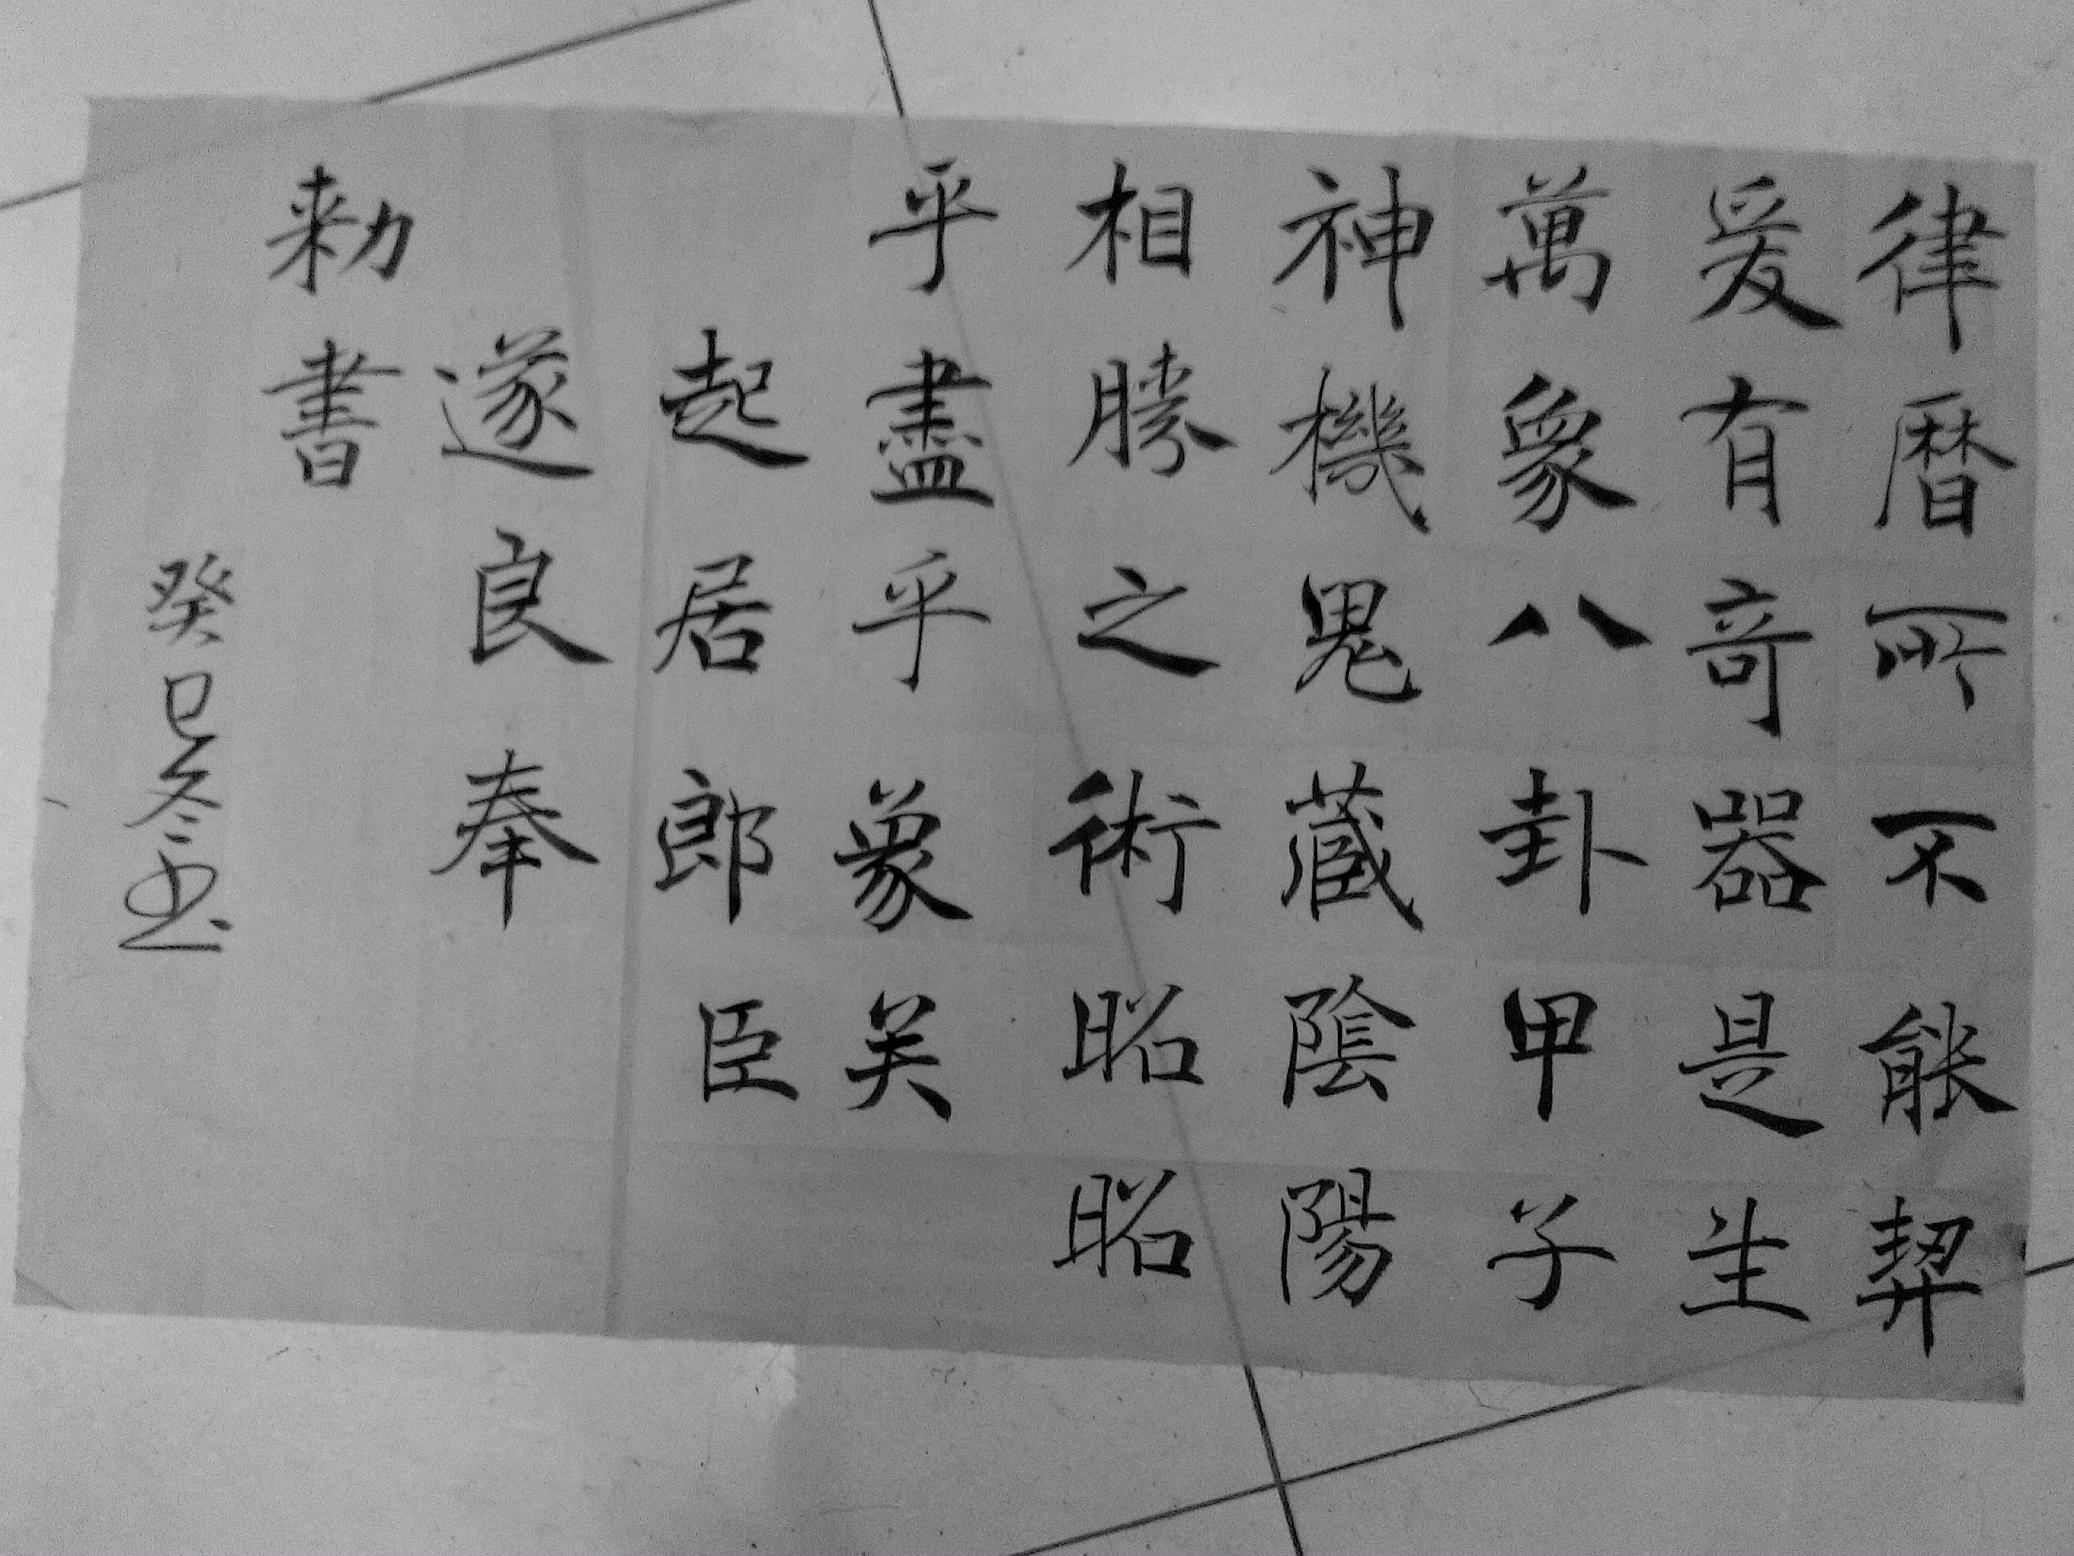 律暦所不能契
爰有奇器是生
萬象八卦甲子
神機鬼藏陰陽
相勝之術昭昭
乎盡乎象矣
起居郎臣
遂良奉
勅書
癸巳冬书